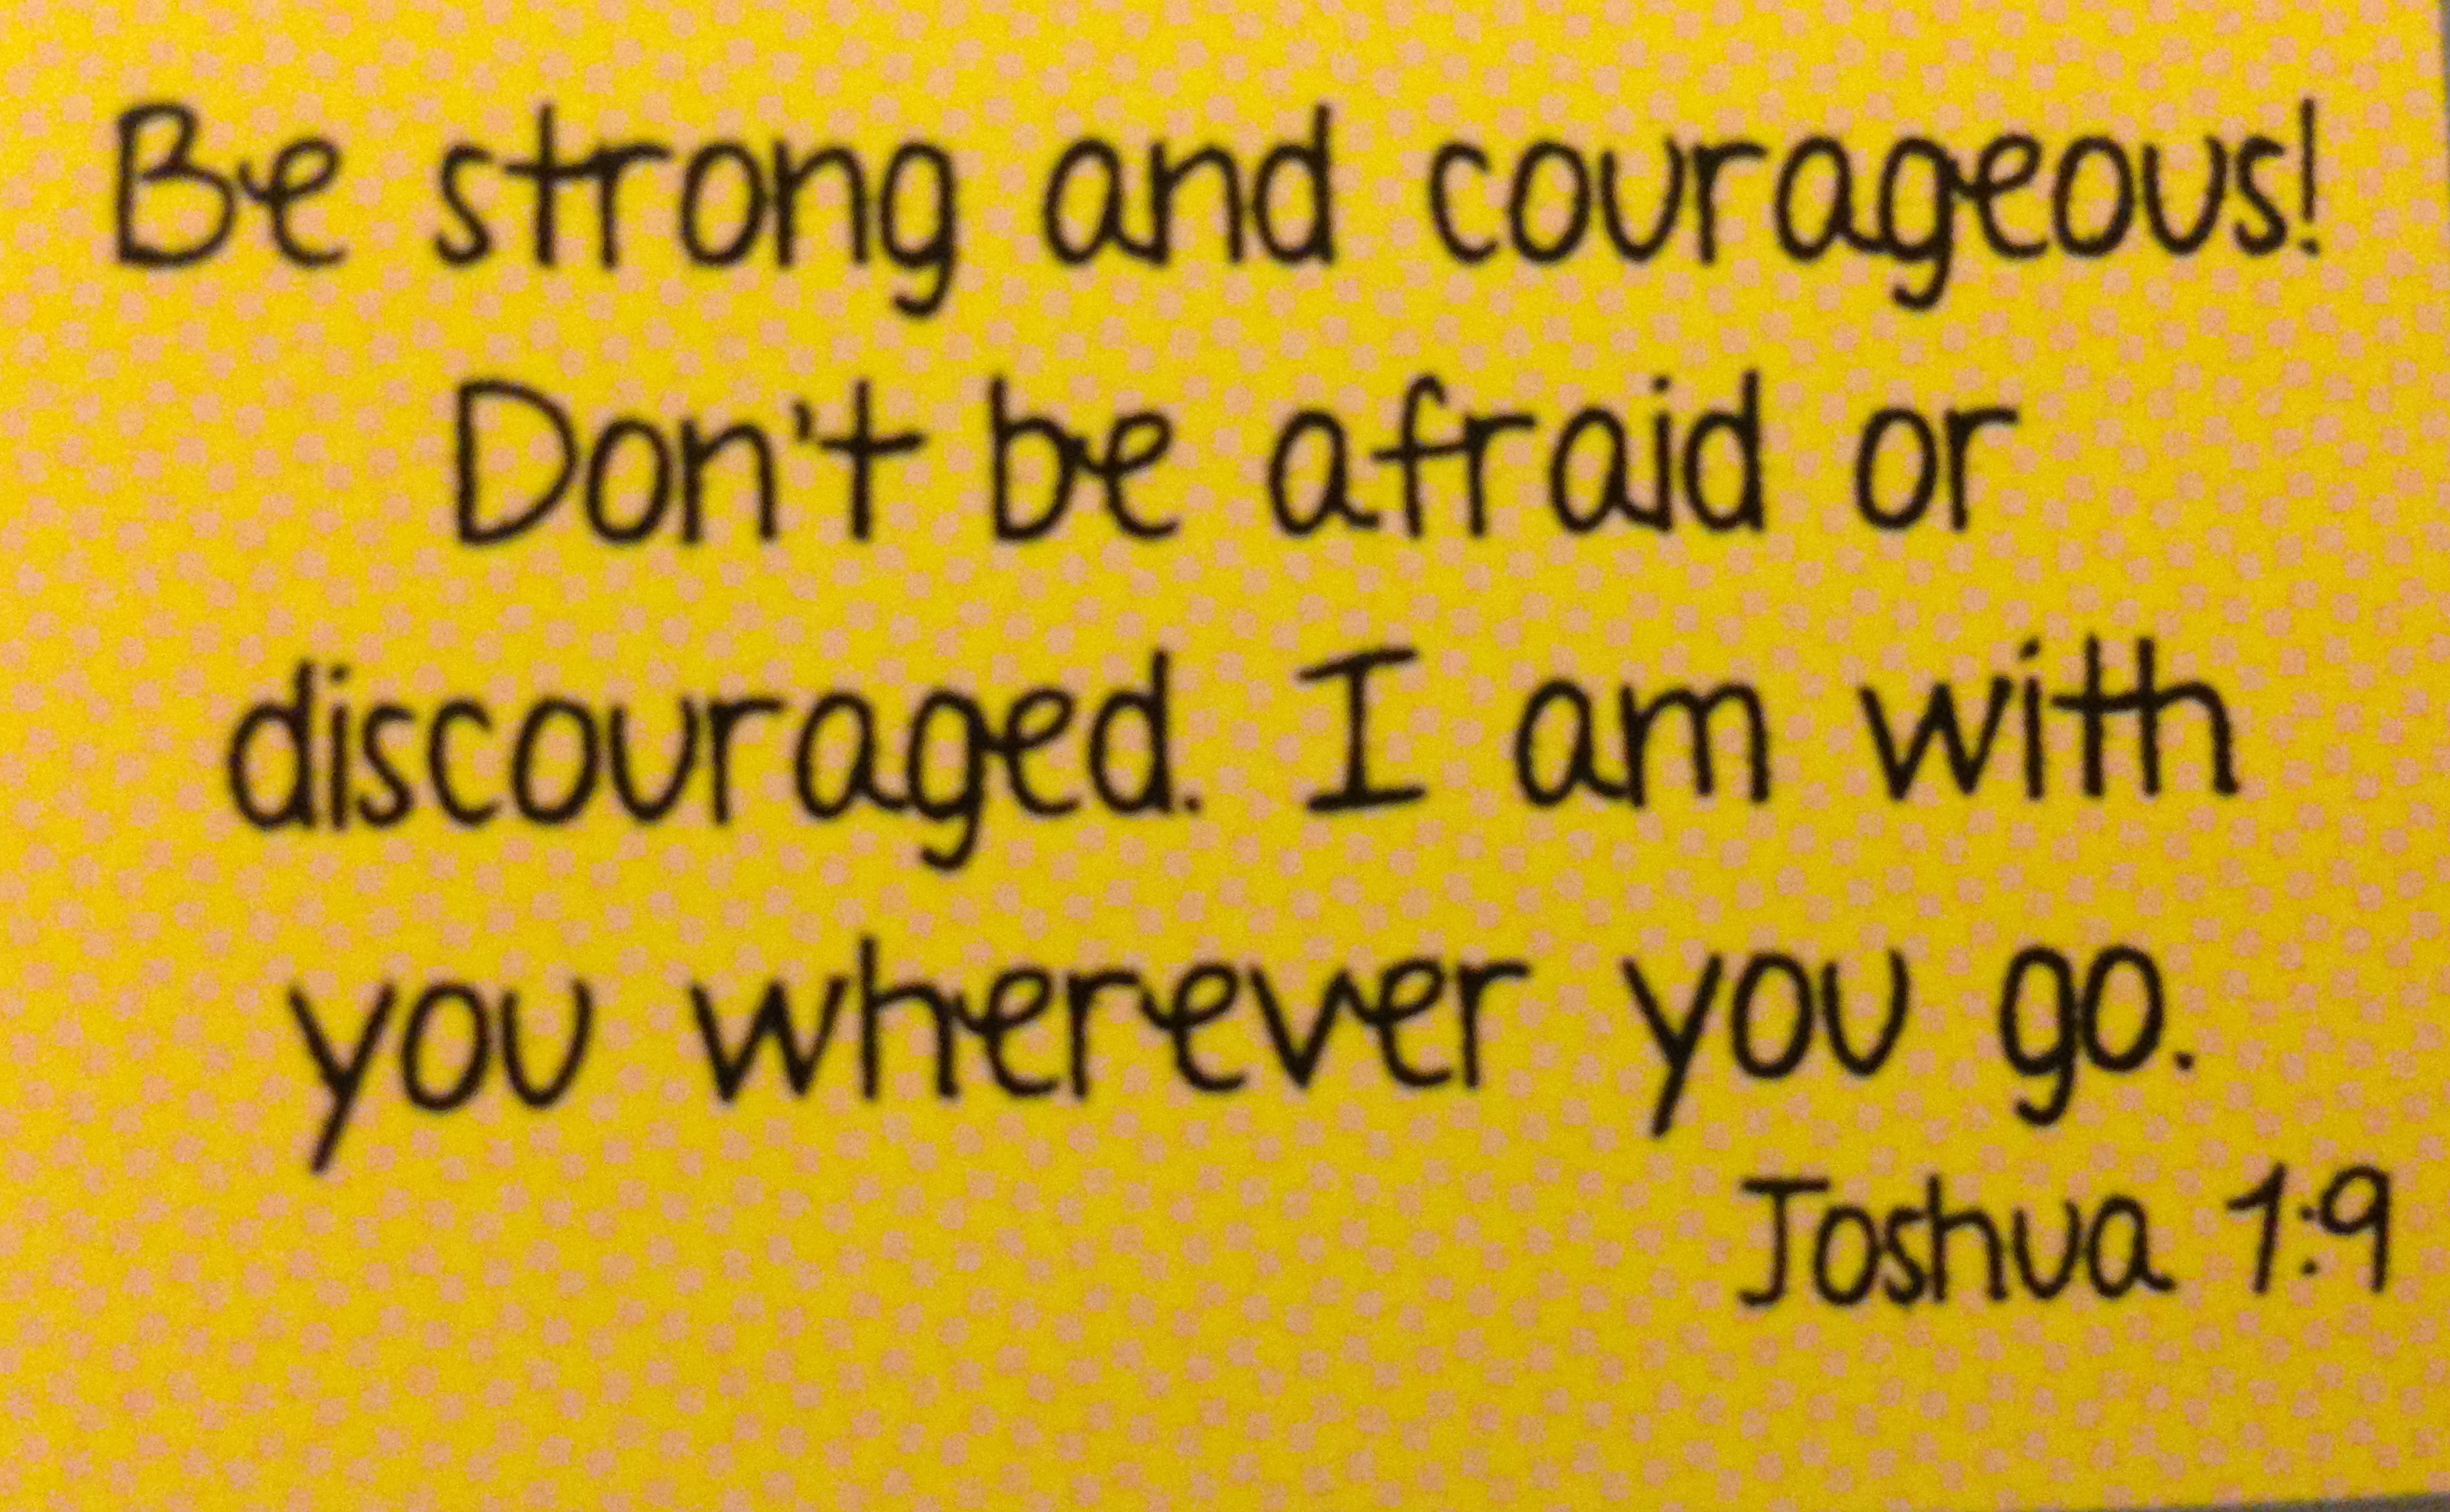 Be strong and courageous!
Don't be afraid or
discouraged. I am with
you wherever you go.
Joshua 1:9